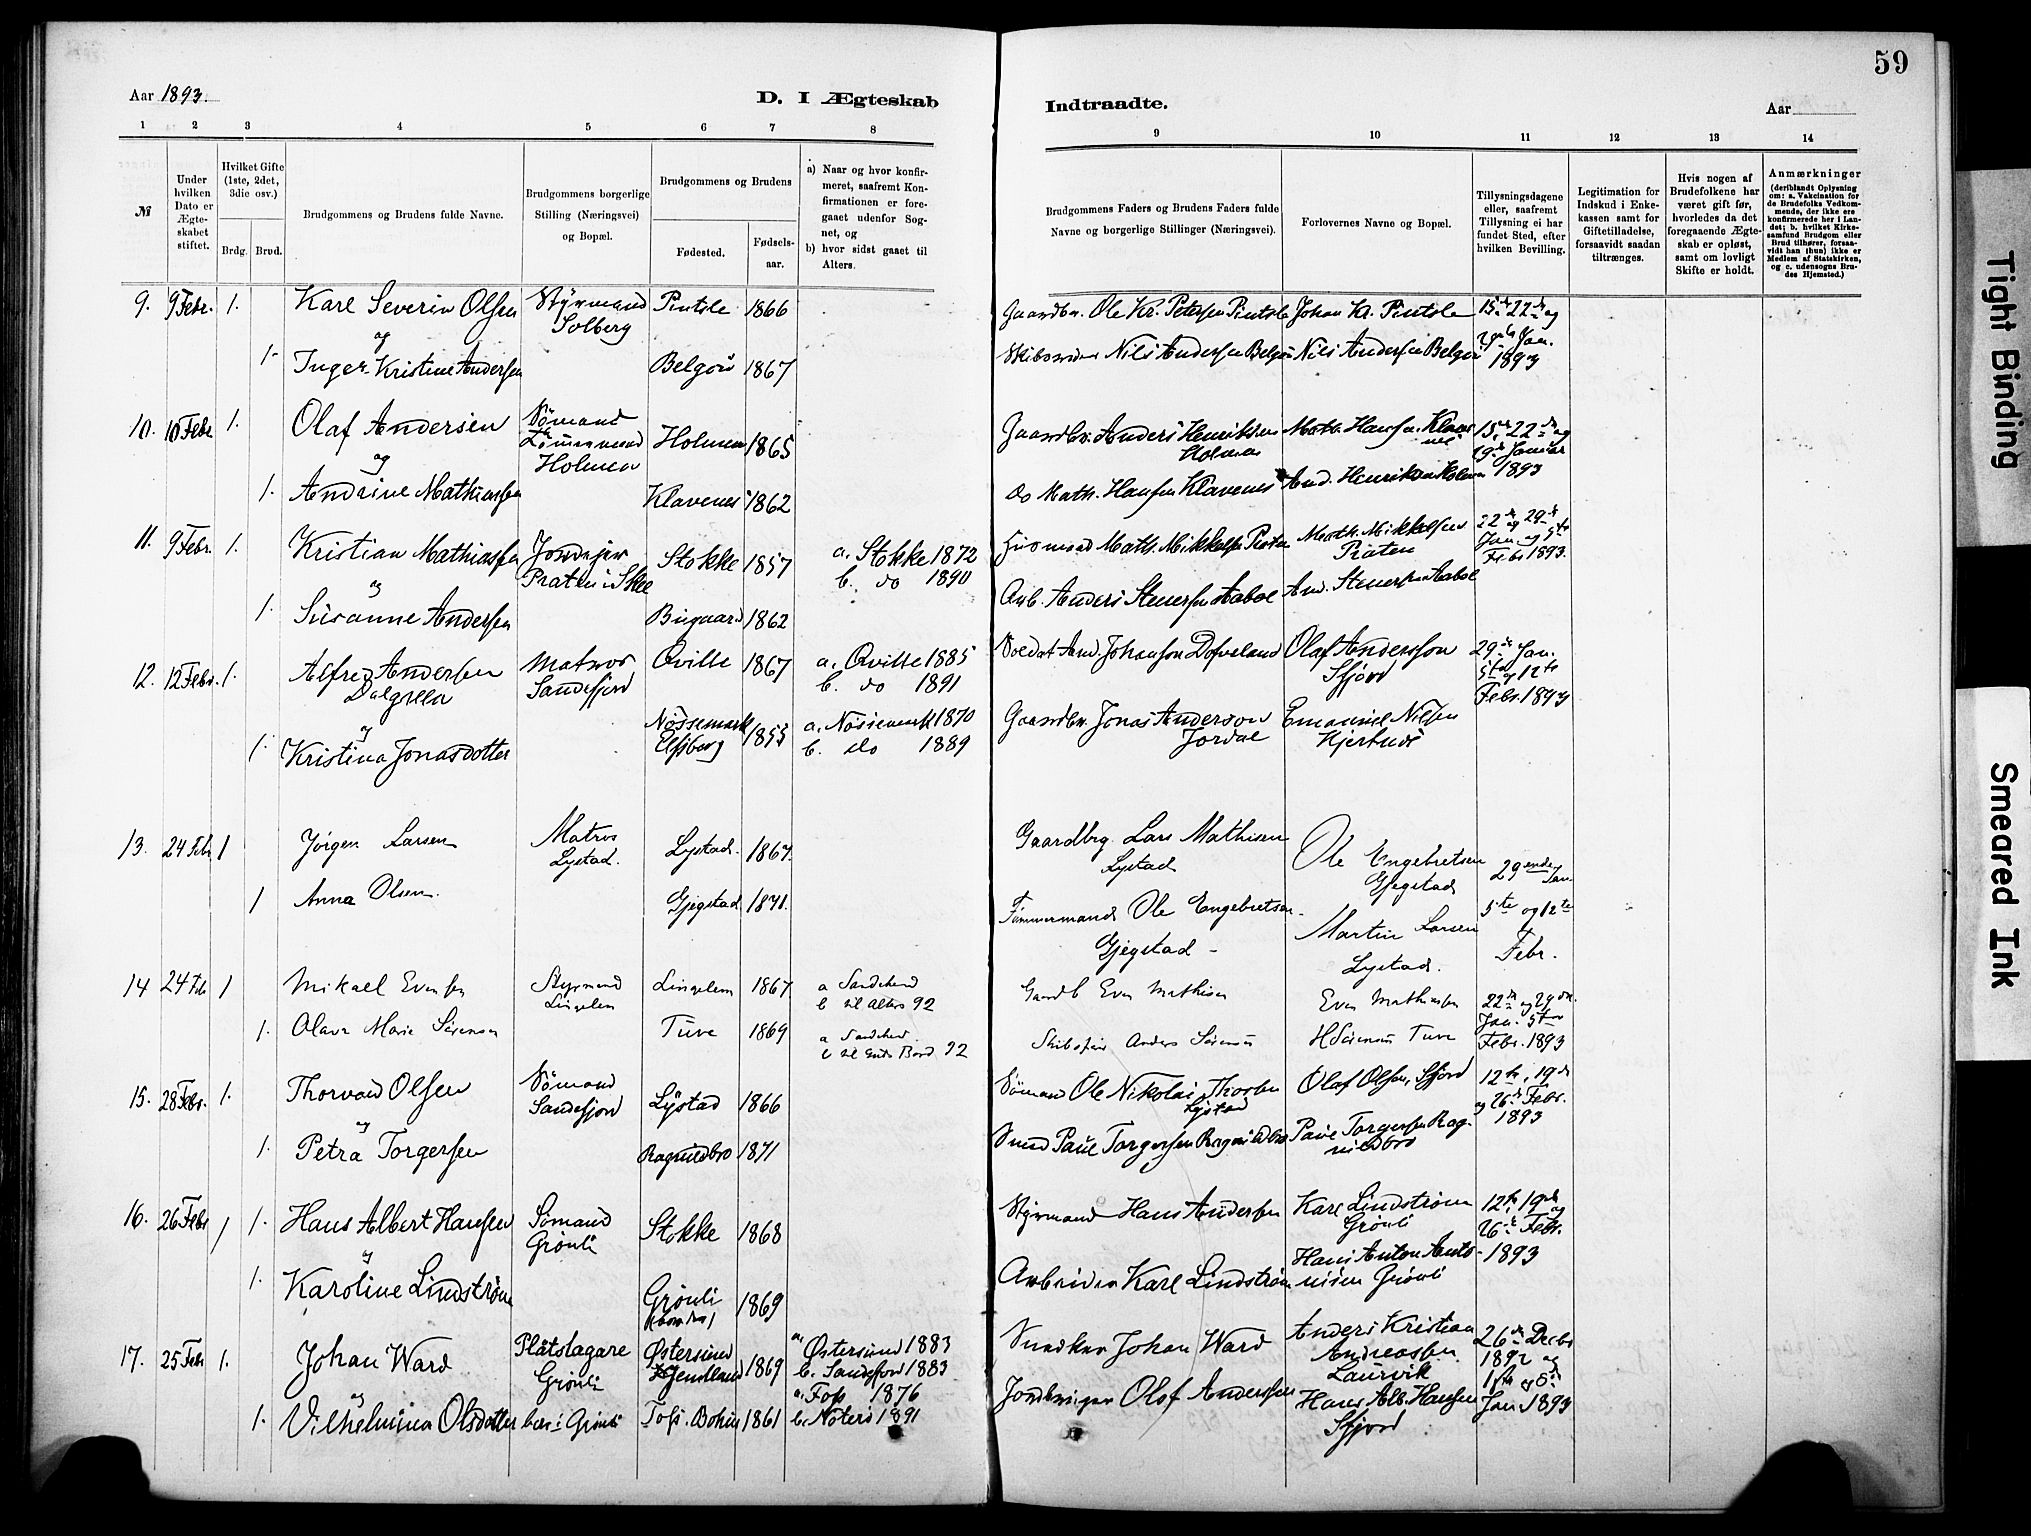 59
Aar 1893.
D. I Ægteskab
Indtraadte.
Aar
1 2 3 4 5 6 7 8
9 10 11 12 13 14
№
Under hvilken Dato er Ægteskabet stiftet.
Hvilket Gifte (1ste, 2det, 3die osv.)
Brdg. Brud.
Brudgommens og Brudens fulde Navne.
Brudgommens borgerlige Stilling (Næringsvei) og Bopæl.
Brudgommens og Brudens
Fødested.
Fødselsaar.
a) Naar og hvor konfirmeret, saafremt Konfirmationen er foregaaet udenfor Sognet, og
b) hvor sidst gaaet til Alters.
Brudgommens Faders og Brudens Faders fulde Navne og borgerlige Stillinger (Næringsvei).
Forlovernes Navne og Bopæl.
Tillysningsdagene eller, saafremt Tillysning ei har fundet Sted, efter hvilken Bevilling.
Legitimation for Indskud i Enkekassen samt for Giftetilladelse, forsaavidt saadan tiltrænges.
Hvis nogen af Brudefolkene har været gift før, hvorledes da det foregaaende Ægteskab er opløst, samt om lovligt Skifte er holdt.
Anmærkninger
(deriblandt Oplysning om: a. Vakcination for de Brudefolks Vedkommende, der ikke ere konfirmerede her i Landet; b. hvilket Kirkesamfund Brudgom eller Brud tilhører, forsaavidt han (hun) ikke er Medlem af Statskirken, og c. udensogns Brudes Hjemsted.)
9. 9 Febr. 1. Karl Severin Olsen Styrmand Solberg Pintsle 1866 Gaardbr. Ole Kr. Petersen Pintsle Johan Kr. Pintsle 15de 22de og
og
29de Jan. 1893
1. Inger Kristine Andersen Belgau 1867 Nils Andersen Belgau Nils Andersen Belgau
10. 10 Febr 1. Olaf Andersen Sømand Holmen Holmen 1865 Gaardbr. Anders Henriksen Holmen Math. Hansen Klavenes 15de 22de og
og
29de Januar 1893
1. Andrine Mathiassen Klavenes 1862 do Math. Hansen Klavenes And. Henriksen Holmen
11. 9 Febr. 1. Kristian Mathiassen Praten i Skee Stokke 1857 a. Stokke 1872
b. do 1890
Math. Mikkelsen Praten Math. Mikkelsen Praten 22de og 29de Jan og 5te Febr 1893.
og
1. Susanne Andersen Bugaard 1862 Arb. Anders Steuersen Aaboe And. Steuersen Aaboe
12. 12 Febr. 1. Alfred Andersen Dalgreen Matros Sandefjord Qville 1867 a. Qville 1885
b. do 1891
Soldat And. Johanson Dofveland Olaf Andersson Sfjord 29de Jan. 5te og 12te Febr. 1893
og
1. Kristina Jonasdotter Nössemark Elfsborg 1855 a. Nössemark 1870
b. do 1889
Gaardbr. Jonas Anderson Jordal Emanuel Nilsen Kjertnæs
13. 24 Feb 1 Jørgen Larsen Matros Lystad. Lystad. 1867. Gaardbrg. Lars Mathisen Lystad Ole Engebretsen Gjegstad 29ende Jan
1 Anna Olsen. Gjegstad 1871. Tømmermand Ole Engebretsen Gjegstad Martin Larsen Lystad. 5te og 12te Febr.
14 24 Feb 1 Mikael Evensen Styrmand Lingelem Lingelem 1867 a Sandeherd
b til Alters 92
Gaardb Even Mathisen Even Mathisen 22de og 29de Jan. 5te Febr. 1893
1. Olava Marie Sørensen Tuve 1869 a Sandeherd.
b til Guds Bord 92
Anders Sørensen H Sørensen Tuve
15. 28 Febr. 1. Thorvald Olsen Sømand Sandefjord Lystad 1866 Sømand Ole Nikolai Thorsen Lystad Olaf Olsen, Sfjord 12te, 19de og 26de Febr. 1893
og
1. Petra Torgersen Ragnildbro 1871 Smed Paul Torgersen Ragnildbro Paul Torgersen Ragnildbro
16. 26 Febr 1 1. Hans Albert Hansen Sømand Grønli Stokke 1868 Styrmand Hans Andersen Karl Lindstrøm Grønli 12te, 19de og 26de Febr. 1893
og
1. Karoline Lindstrøm Grønli 1869 Arbeider Karl Lindstrøm Hans Anton Antonisen Grønli
17. 25 Feb 1. Johan Ward Plåtslagare Grønli Østersund Jemtland 1869 a. Østersund 1883
b. Sandefjord 1883
Snedker Johan Ward Anders Kristian Andreassen Laurvik 26de Decbr 1892 og
og
1. Vilhelmina Olsdotter Grønli Foss. Bohus 1861 a. Foss 1876
b. Nøterø 1891
Jordbruger Olof Anderssen Hans Alb. Hansen Sfjord 1ste og 8de Jan. 1893
Tight Binding
Smeared Ink